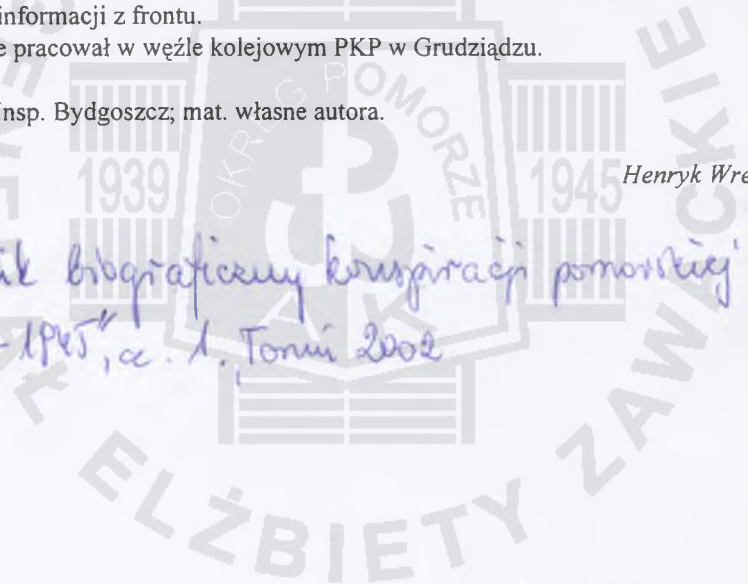 informacji z frontu.
e pracował w węźle kolejowym PKP w Grudziądzu.
Insp. Bydgoszcz; mat. własne autora.
Henryk Wre
ik biograficzny konspiracji pomorskiej
-1945", cz. 1., Toruń 2002
OKRĘG POMORZE
1939
1945
AK
ELŻBIETY ZAWACKIE